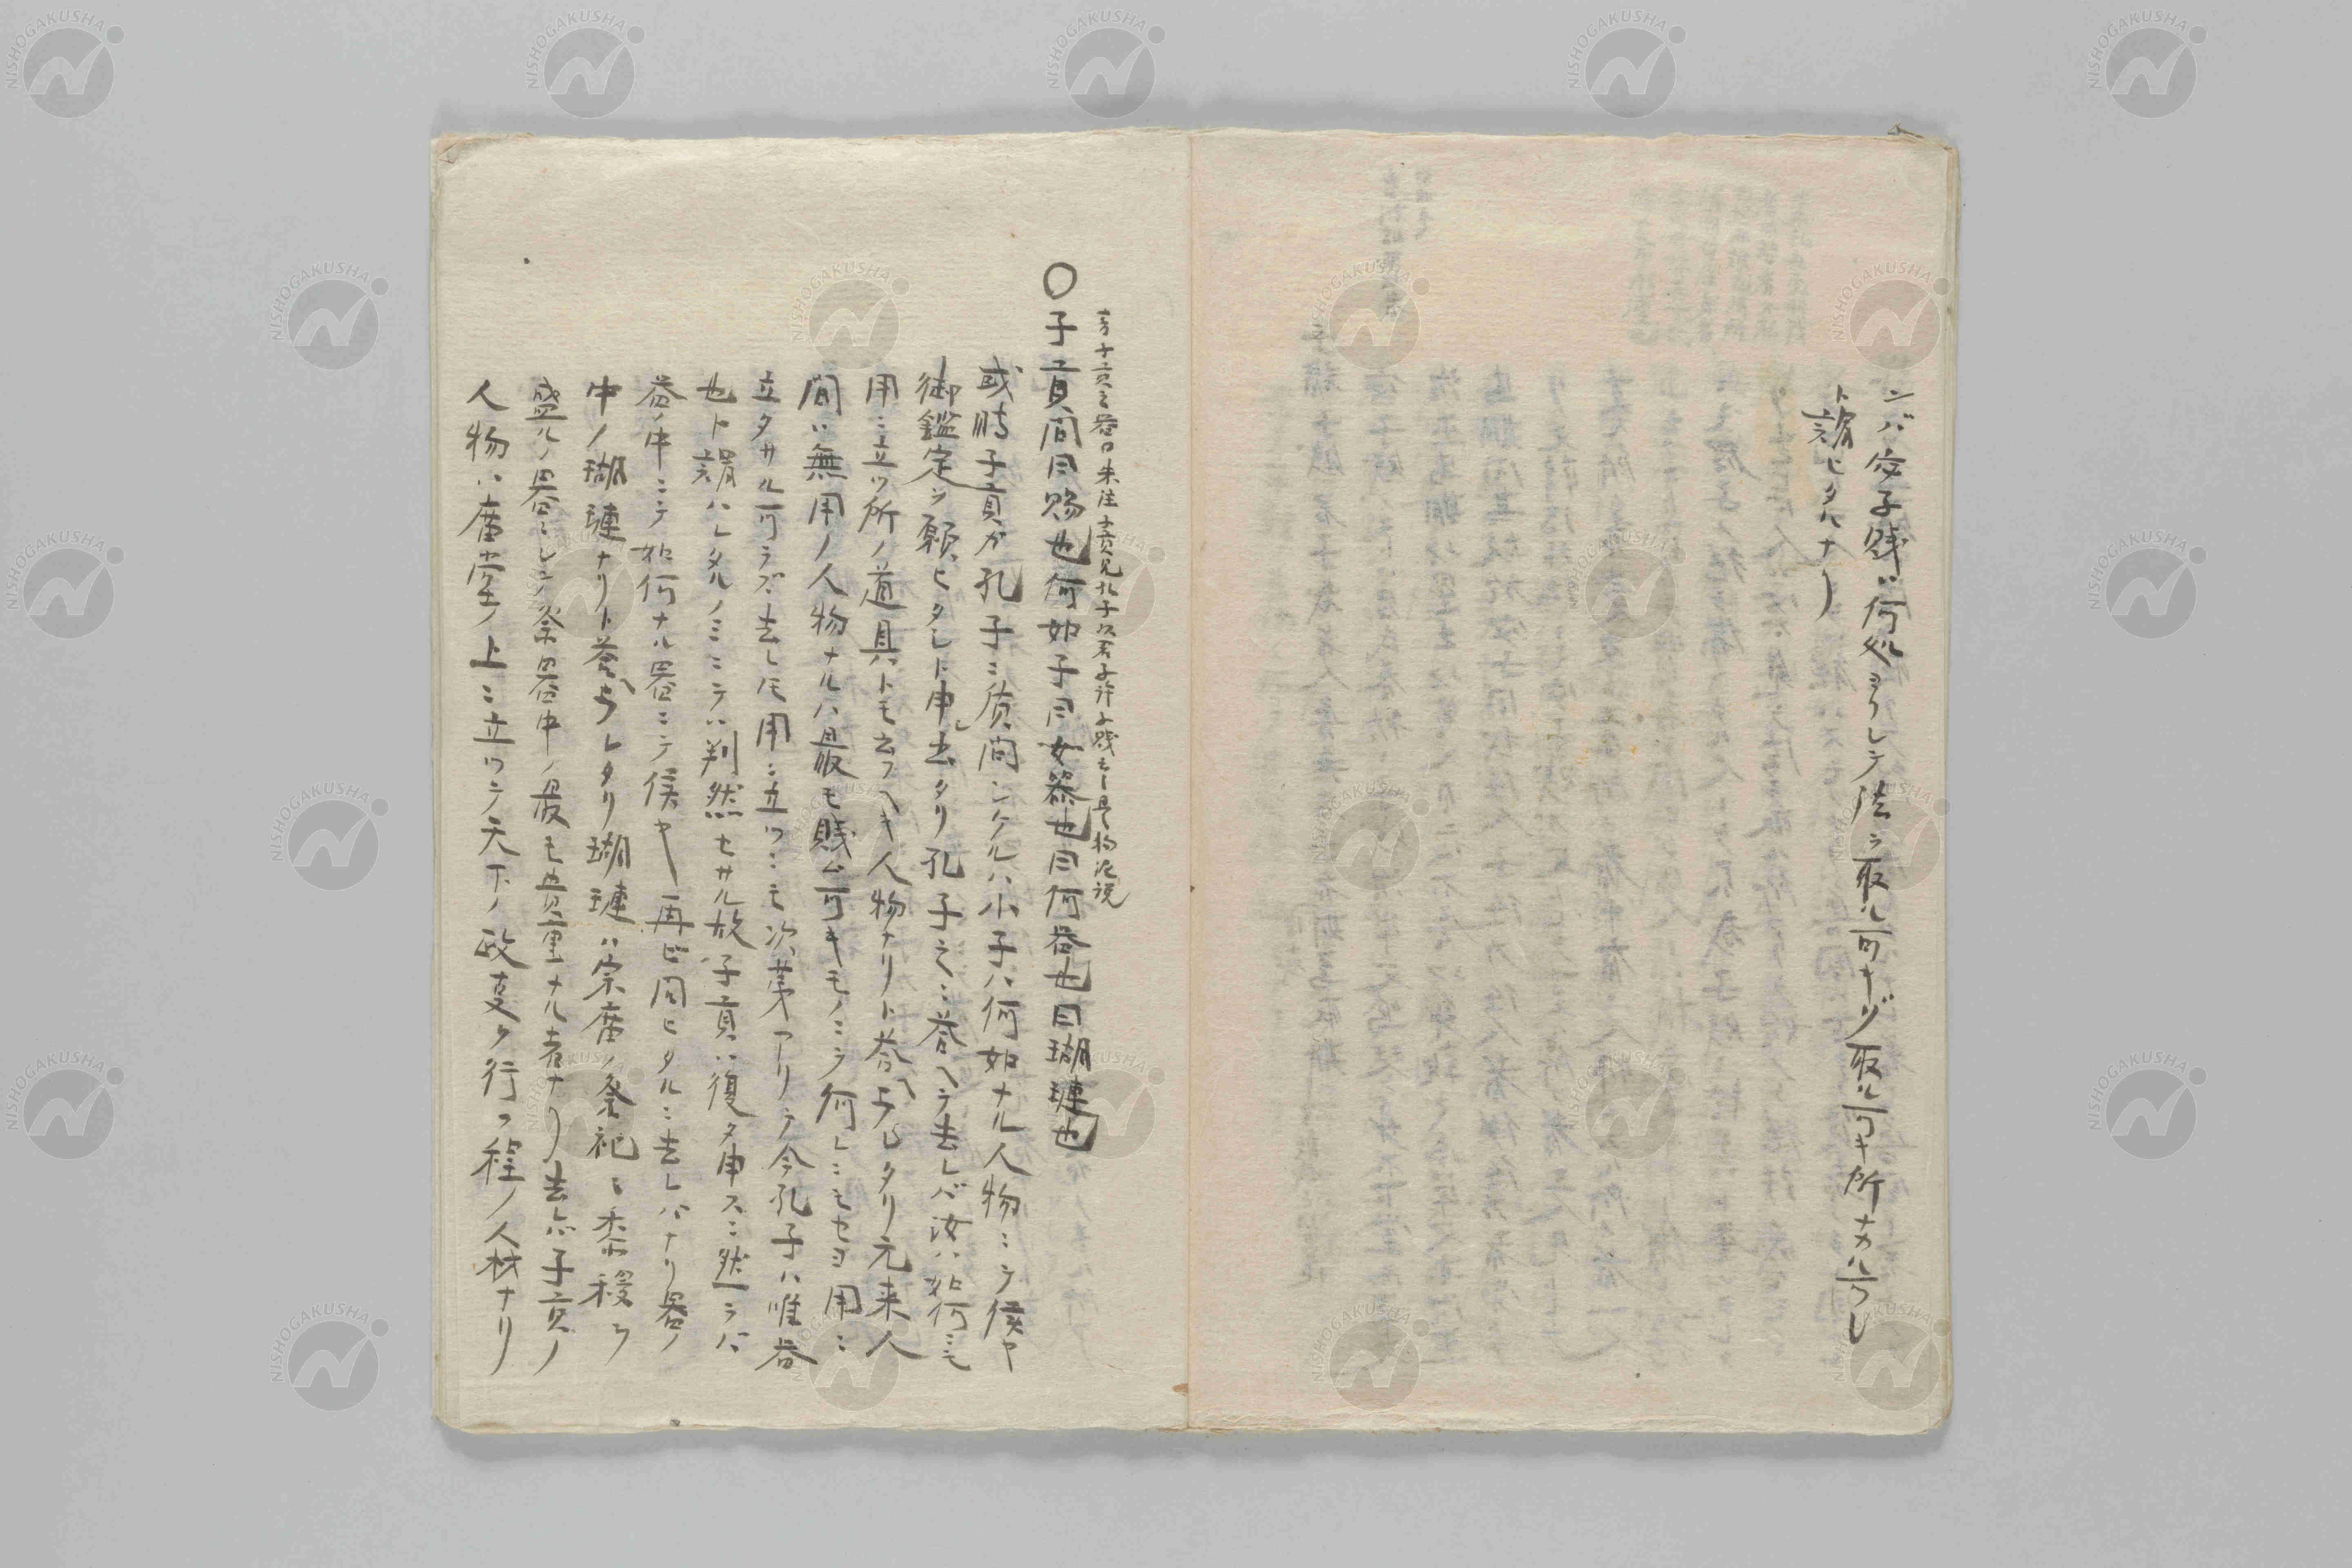 ンバ宓子賤ハ何処ヨリシテ法ヲ取ル可キゾ取ル可キ所ナカル可シ
ト謂ヒタルナリ
子貢之 曰朱注 貢見孔子以君子許子賤 是物 説
〇子貢問曰賜也何如子曰女器也曰何器也曰瑚璉也
或時子貢ガ孔子ニ質問シケルハ小子ハ何如ナル人物ニテ候ヤ
御鑑定ヲ願ヒタシト申し去タリ孔子之ニ答ヘテ去レバ汝ハ如何ニモ
用ニ立ツ所ノ道具トモ云フヘキ人物ナリト答ヘラレタリ元来人
間ハ無用ノ人物ナルハ最モ賤ム可キモノニテ何レニモセヨ用ニ
立タサル可ラズ去レ𪜈用ニ立ツニモ次第アリテ今孔子ハ唯器
也ト謂ハレタルノミニテハ判然セサル故子貢ハ復タ申スニ然ラバ
器ノ中ニテ如何ナル器ニテ候ヤ再ビ問ヒタルニ去レバナリ器ノ
中ノ瑚璉ナリト答ヘラレタリ瑚璉ハ宗廟ノ祭祀ニ黍稷ヲ
盛ルノ器ニシテ祭器中ノ最モ貴重ナル者ナリ去レバ子貢ノ
人物ハ廟堂ノ上ニ立ツテ天下ノ政事ヲ行フ程ノ人材ナリ
NISHOGAKUSHA